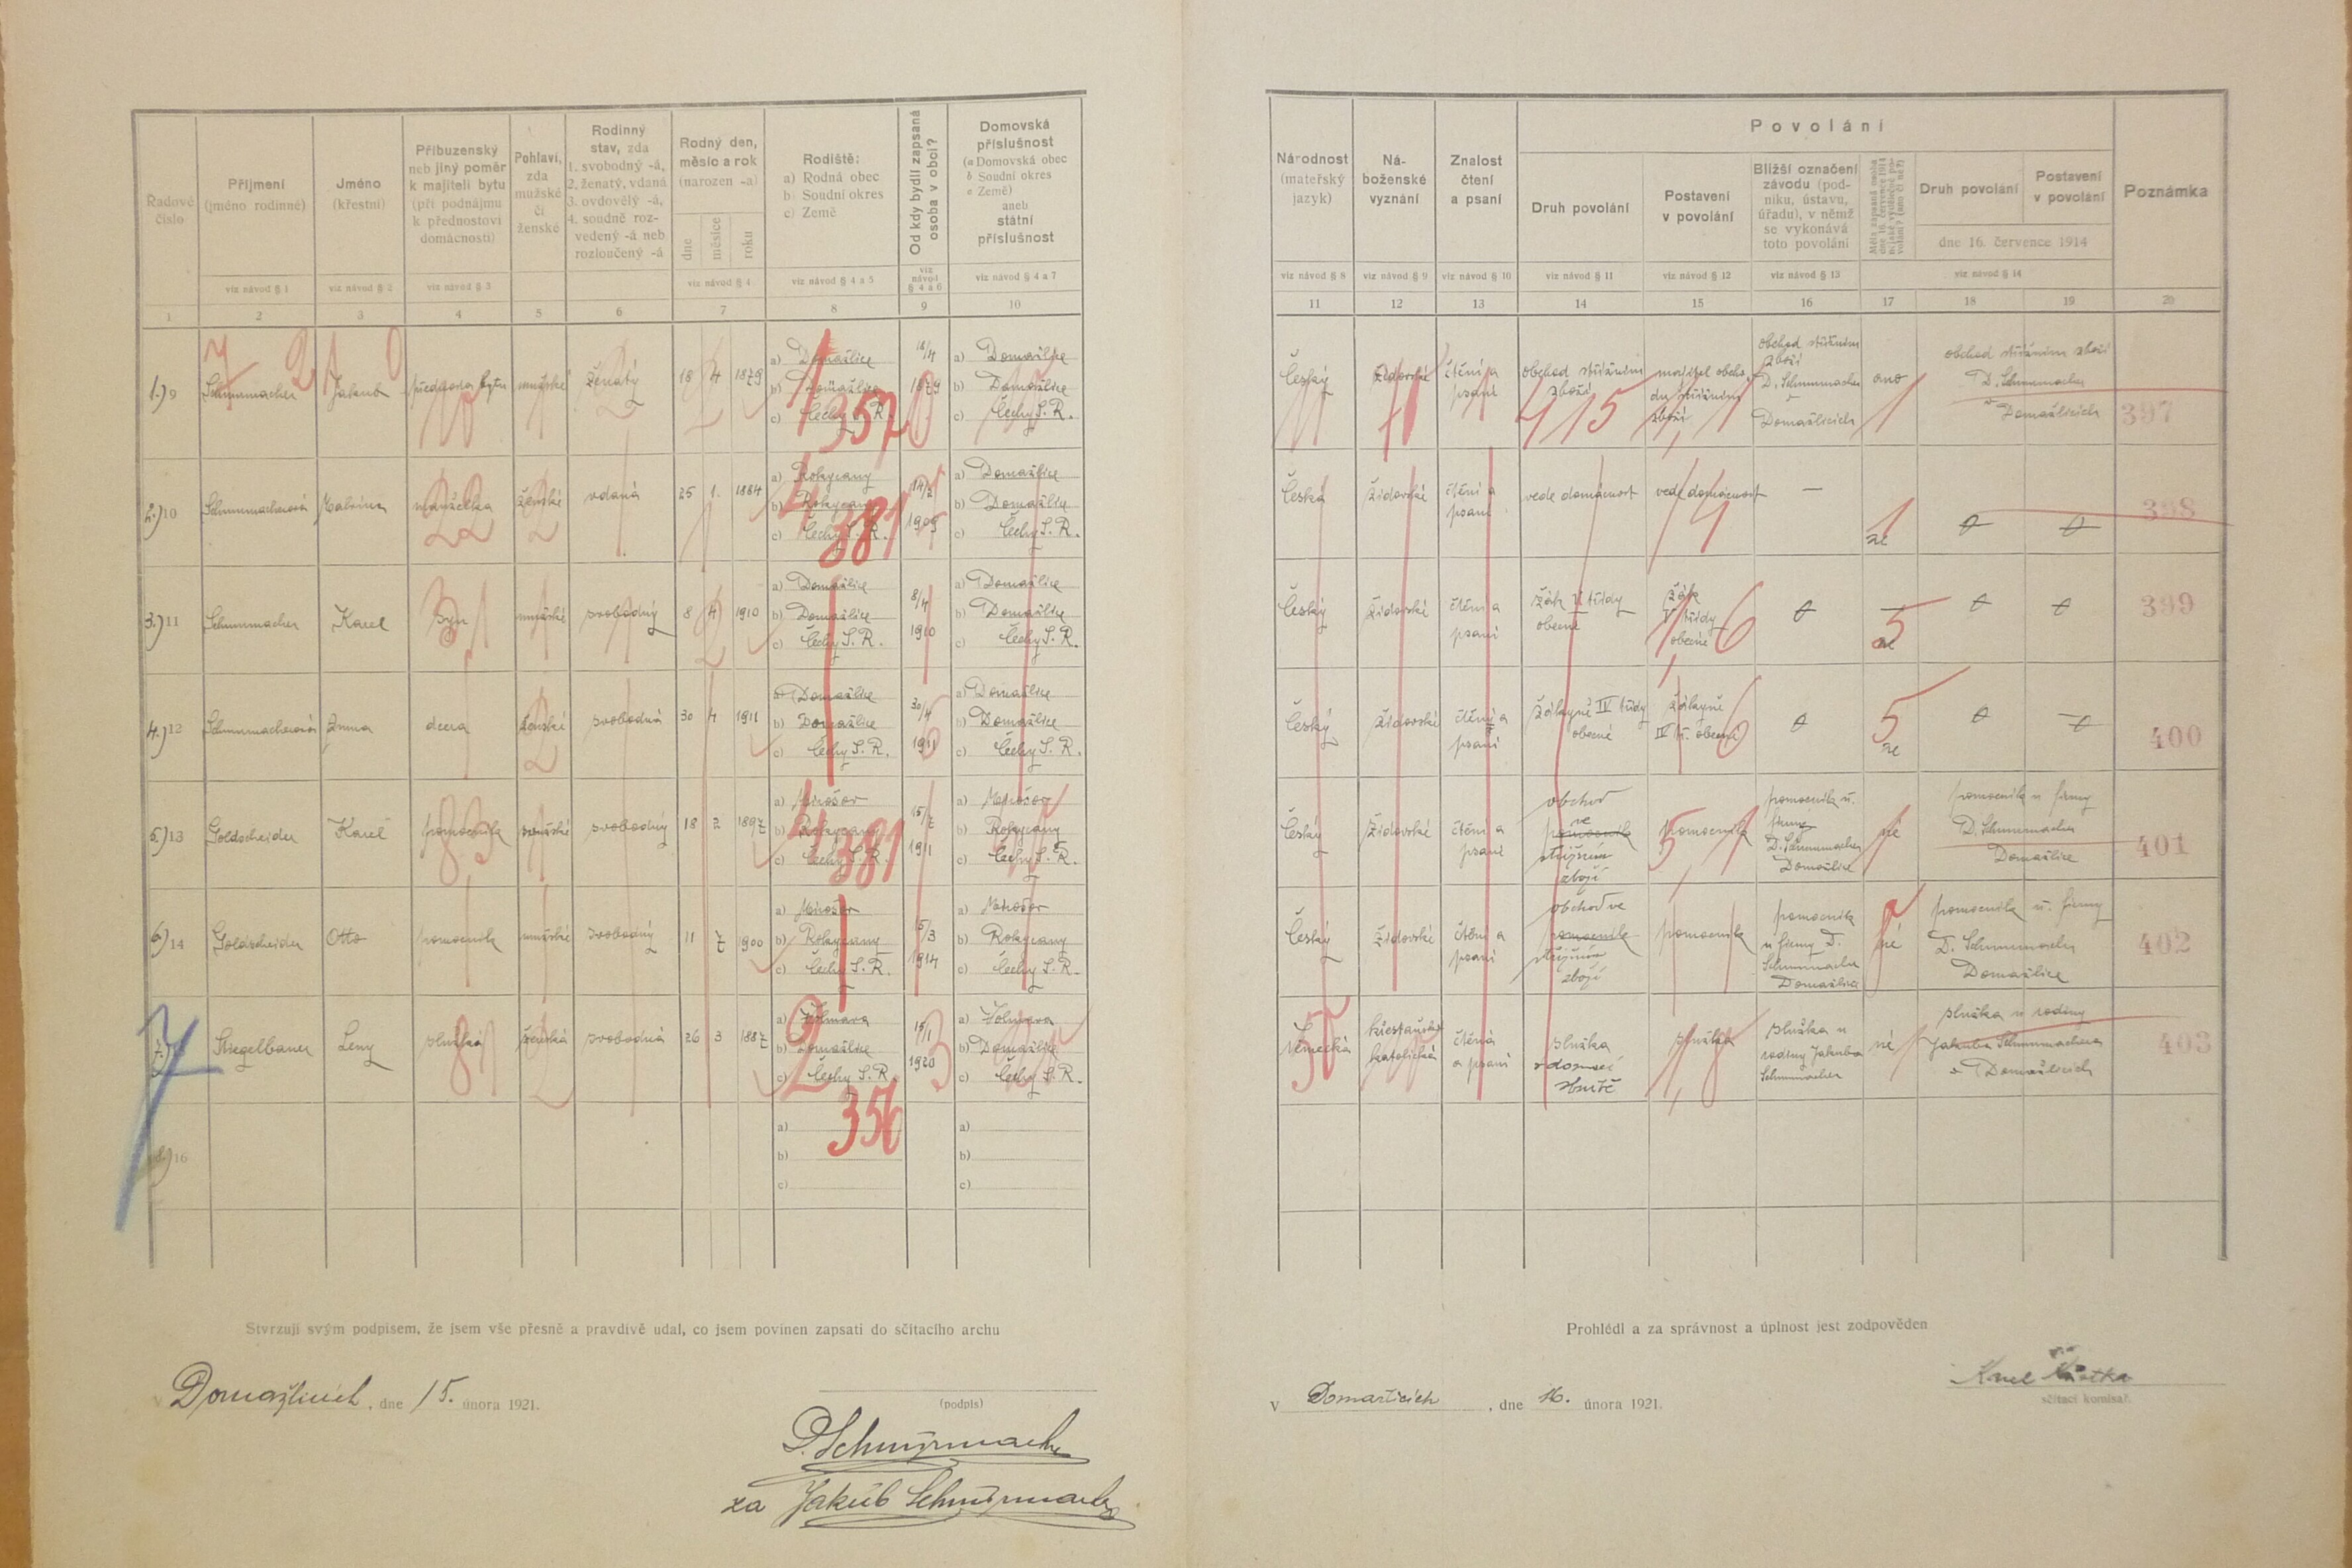 Řadové číslo
Příjmení
(jméno rodinné)
viz návod § 1
Jméno
(křestní)
viz návod § 2
Příbuzenský
neb jiný poměr
k majiteli bytu
(při podnájmu
k přednostovi
domácnosti)
viz návod § 3
Pohlaví,
zda
mužské
či
ženské
Rodinný
stav, zda
1. svobodný -á,
2. ženatý, vdaná
3. ovdovělý -á,
4. soudně roz-
vedený -á neb
rozloučený -á
Rodný den,
měsíc a rok
(narozen -a)
dne
měsíce
roku
viz návod § 4
Rodiště:
a) Rodná obec
b) Soudní okres
c) Země
viz návod § 4 a 5
Od kdy bydlí zapsaná
osoba v obci?
viz
návod
§ 4 a 6
Domovská
příslušnost
(a Domovská obec
b Soudní okres
c Země)
aneb
státní
příslušnost
viz návod § 4 a 7
1 2 3 4 5 6 7 8 9 10
1.) 9 Schmirmacher Jakub přednosta bytu mužské ženatý 18 4 1879
a) Domažlice
b) Domažlice
c) Čechy S. R.
18/4
1879
a) Domažlice
b) Domažlice
c) Čechy S. R.
357
2.) 10 manželka ženské vdaná 25 1. 1884
a) Rokycany
b) Rokycany
c) Čechy S. R.
1909
a) Domažlice
b) Domažlice
c) Čechy S. R.
381
3.) 11 Karel syn mužské svobodný 8 4 1910
a) Domažlice
b) Domažlice
c) Čechy S. R.
8/4
1910
a) Domažlice
b) Domažlice
c) Čechy S. R.
4.) 12 Anna dcera ženské svobodná 30 4 1911
a) Domažlice
b) Domažlice
c) Čechy S. R.
30/4
1911
a) Domažlice
b) Domažlice
c) Čechy S. R.
5.) 13 Goldscheider Karel pomocník mužské svobodný 18 2 1897
a) Mirošov
b) Rokycany
c) Čechy S. R.
15/7
1911
a) Mirošov
b) Rokycany
c) Čechy S. R.
381
6.) 14 Goldscheider Otto pomocník mužské svobodný 11 7 1900
a) Mirošov
b) Rokycany
c) Čechy S. R.
15/3
1914
a) Mirošov
b) Rokycany
c) Čechy S. R.
7.) Stiegelbauer Leny služka ženská svobodná 26 3 1887
a) Folmava
b) Domažlice
c) Čechy S. R.
15/1
1920
a) Folmava
b) Domažlice
c) Čechy S. R.
356
8.) 16
a)
b)
c)
a)
b)
c)
Stvrzuji svým podpisem, že jsem vše přesně a pravdivě udal, co jsem povinen zapsati do sčítacího archu
V Domažlicích, dne 15. února 1921.
(podpis)
D. Schmirmacher
za Jakub Schmirmacher
Národnost
(mateřský
jazyk)
viz návod § 8
Ná-
boženské
vyznání
viz návod § 9
Znalost
čtení
a psaní
viz návod § 10
Povolání
Druh povolání
viz návod § 11
Postavení
v povolání
viz návod § 12
Bližší označení
závodu (pod-
niku, ústavu,
úřadu), v němž
se vykonává
toto povolání
viz návod § 13
Druh povolání
Postavení
v povolání
dne 16. července 1914
viz návod § 14
Poznámka
11 12 13 14 15 16 17 18 19 20
Český židovské čtení a psaní
obchod střižním
zboží
majitel obcho-
du střižním
zboží
obchod střižním
zboží
D. Schmirmacher
v
Domažlicích
ano
obchod střižním zboží
D. Schmirmacher
v Domažlicích
397
415
Česká židovské čtení a psaní vede domácnost vede domácnost — ne
398
Český židovské čtení a psaní
žák V třídy
obecné
žák
V třídy
obecné
ne
399
Český židovské čtení a psaní
žákyně IV třídy
obecné
žákyně
IV tř. obecné
ne
400
Český židovské čtení a psaní
obchod
ve
pomocník
střižním
zboží
pomocník
pomocník u
firmy
D. Schmirmacher
Domažlice
ne
pomocník u firmy
D. Schmirmacher
Domažlice
401
Český židovské čtení a psaní
obchod ve
pomocník
střižním
zboží
pomocník
pomocník
u firmy D.
Schmirmacher
Domažlice
ne
pomocník u firmy
D. Schmirmacher
Domažlice
402
Německá křesťansko
katolická
čtení
a psaní
služka
v domácí
služka
služka u
rodiny Jakuba
Schmirmacher
né
služka u rodiny
Jakuba Schmirmachera
v Domažlicích
403
Prohlédl a za správnost a úplnost jest zodpověden
V Domažlicích, dne 16. února 1921.
Karel
sčítací komisař.